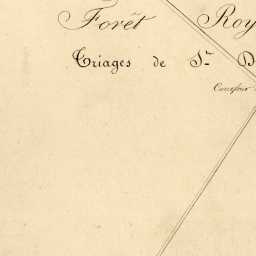 Forêt Roy
Triages de St. D